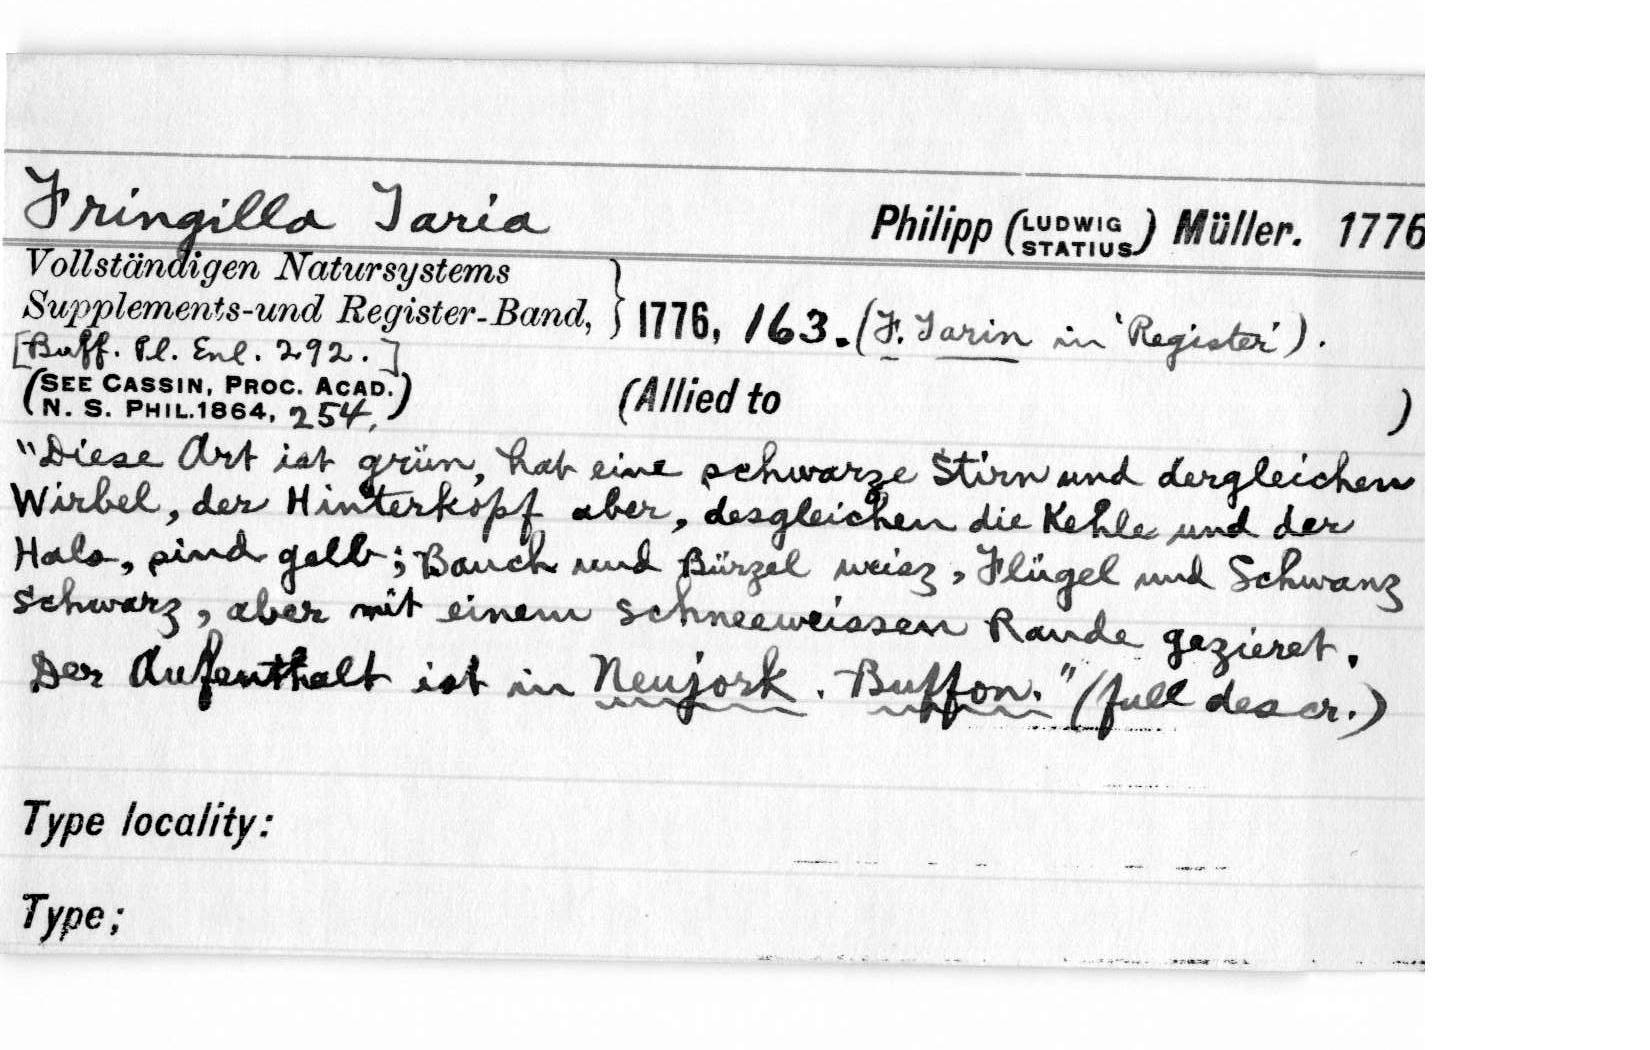 Fringilla Taria Philipp (LUDWIG STATIUS) Müller. 1776
Vollständigen Natursystems
Supplements-und Register-Band, } 1776, 163. (F. Tarin in 'Register').
[Buff. Pl. Enl. 292.]
(SEE CASSIN, PROC. ACAD.
N. S. PHIL. 1864, 254.) (Allied to )
"Diese Art ist grün, hat eine schwarze Stirn und dergleichen
Wirbel, der Hinterkopf aber, desgleichen die Kehle und der
Hals, sind gelb; Bauch und Bürzel weisz, Flügel und Schwanz
schwarz, aber mit einem schneeweissen Rande gezieret.
Der Aufenthalt ist in Neujork. Buffon." (full descr.)
Type locality:
Type;